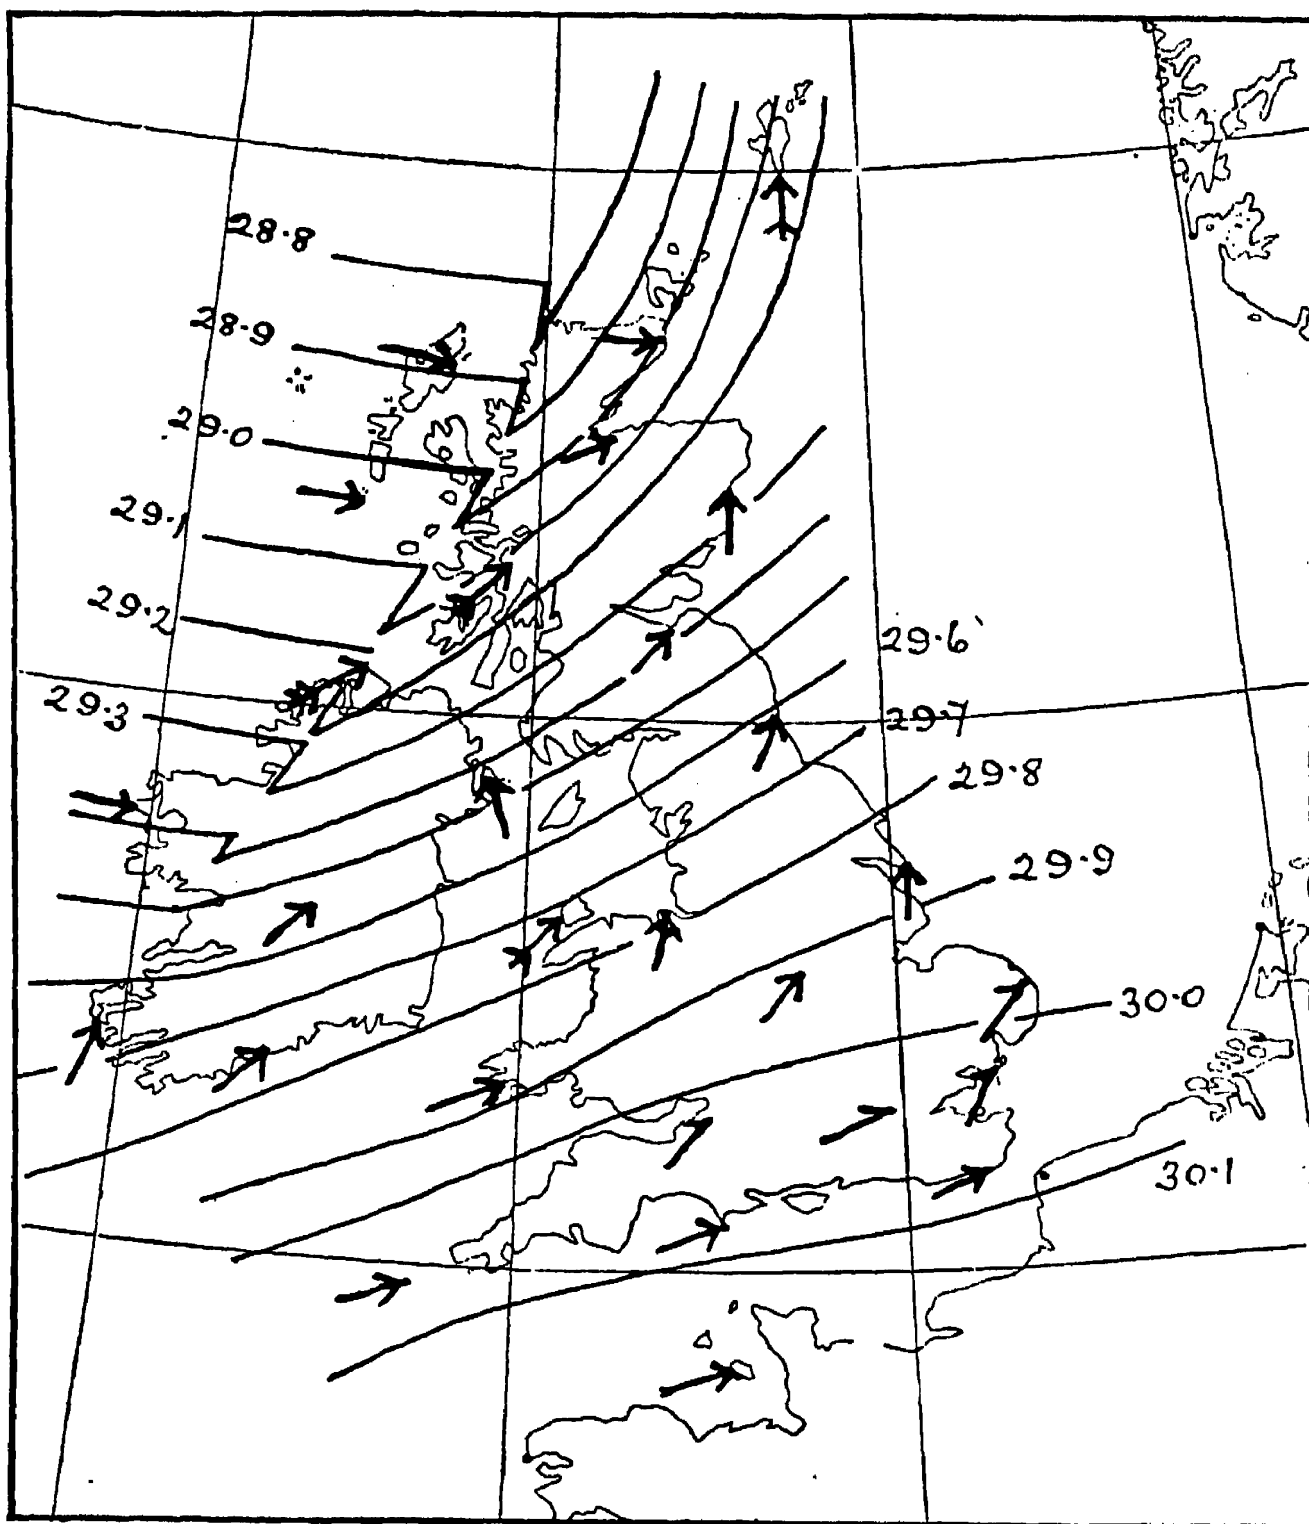 28.8
28.9
29.0
29.1
29.2
29.3
29.6
29.7
29.8
29.9
30.0
30.1